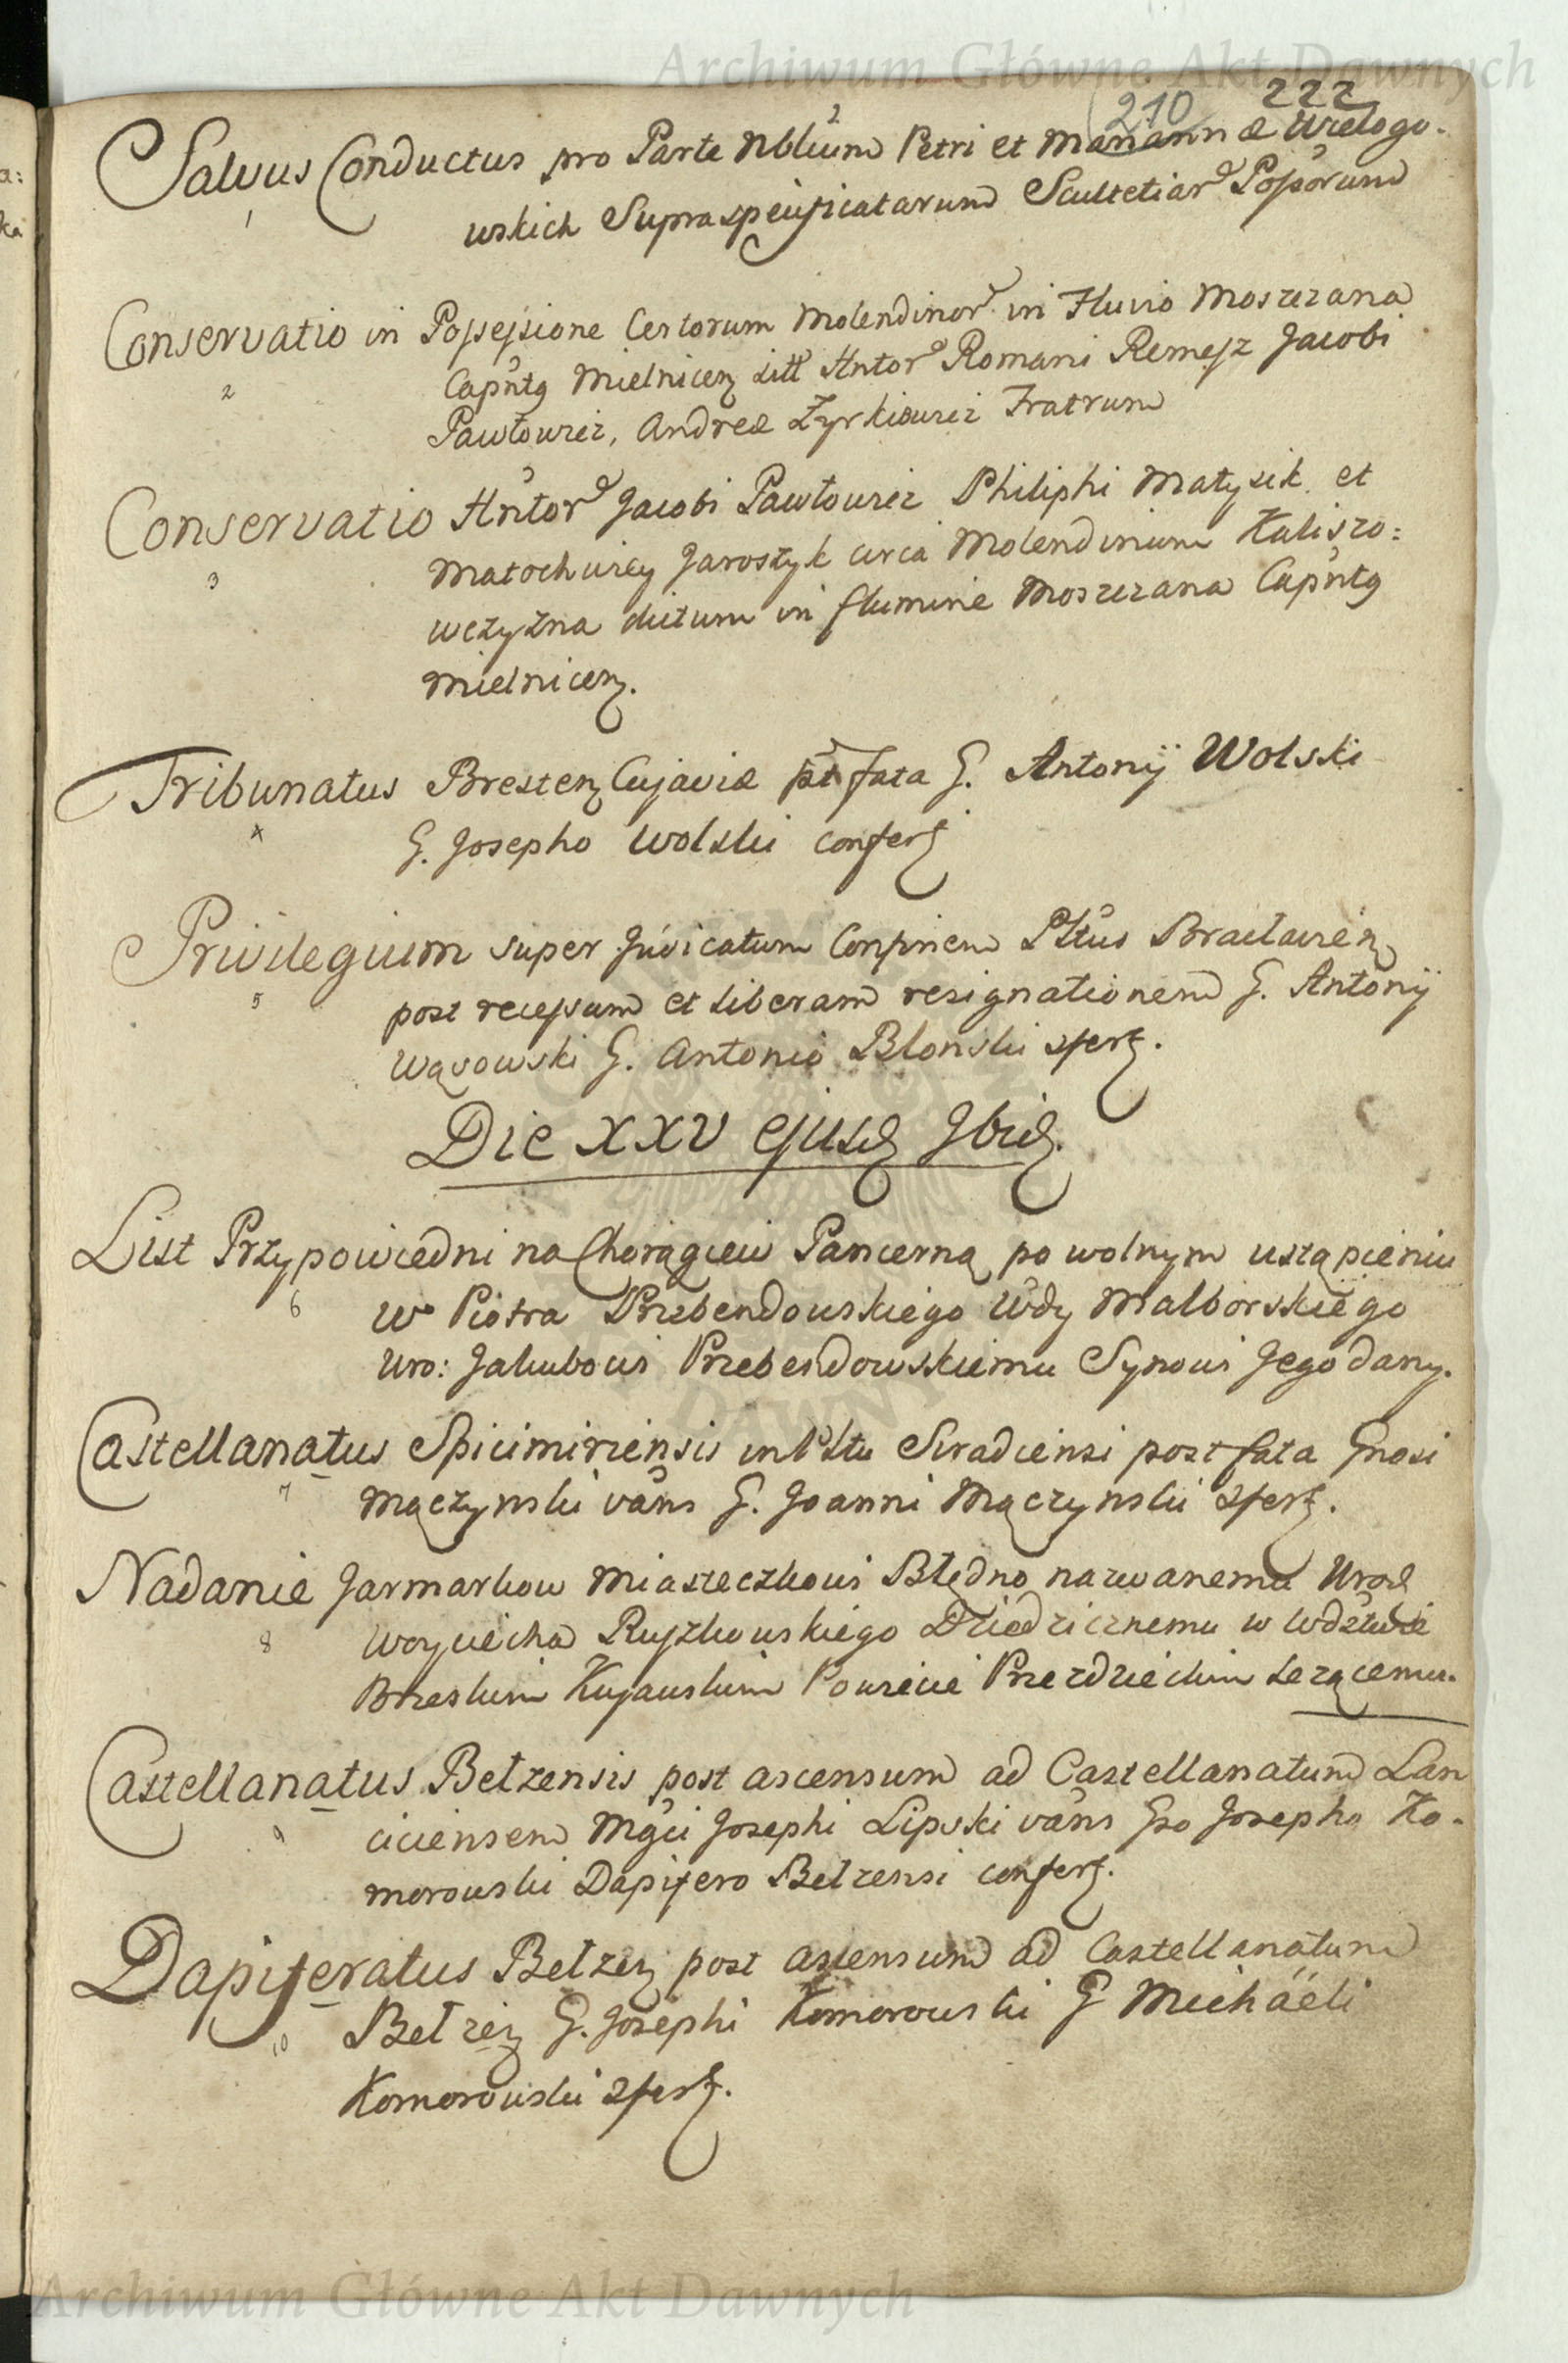 Archiwum Główne Akt Dawnych
210 222
Salvus Conductus pro Parte Nblium Petri et Mariannæ Wielogo-
wskich Supraspecificatarum Scultetiar Possorum
1
Conservatio in Possessione Certorum Molendinor in Fluvio Moszczana
2 Capntg Mielnicen Sitt Hntor Romani Remesz Jacobi
Pawłowicz, Andreæ Zyrkiewicz Fratrum
Conservatio Hntor Jacobi Pawłowicz Philiphi Matysik et
3 Matochwiey Jarostyk circa Molendinum Kaliszo:
wczyzna dictum in flumine Moszczana Capntg
Mielnicen.
Tribunatus Bresten Cujaviæ pt fata G. Antonij Wolski
4 G. Josepho Wolski confert
Privilegium super Judicatum Confinem Pltus Braclavien
5 post recessum et liberam resignationem G. Antonij
Wąsowski G. Antonio Blonski 2fert.
Die XXV ejusd Ibid.
List Przypowiedni na Chorągiew Pancerną po wolnym ustąpieniu
6 W Piotra Przebendowskiego Wdy Malborskiego
Uro: Jakubowi Przebendowskiemu Synowi Jego dany.
Castellanatus Spicimiriensis in Pltu Siradiensi post fata Gnosi
7 Mączynski vans G. Joanni Mączynski 2fert.
Nadanie Jarmarkow Miasteczkowi Błędno nazwanemu Urod
8 Woyciecha Ruszkowskiego Dziedzicznemu w Wdztwie
Brzeskim Kujauskim Powiecie Przezdzieckim Lezącemu.
Castellanatus Bełzensis post ascensum ad Castellanatum Lan
9 ciciensem Mgci Josephi Lipski vans Gso Josepho Ko-
morowski Dapifero Bełzensi confert.
Dapiferatus Bełzen post ascensum ad Castellanatum
10 Bełzen G. Josephi Komorowski G Michäeli
Komorowski 2fert.
Archiwum Główne Akt Dawnych